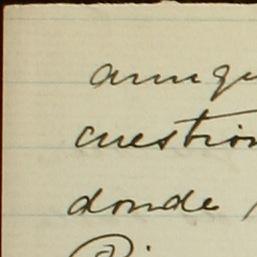 aunqu
cuestion
donde